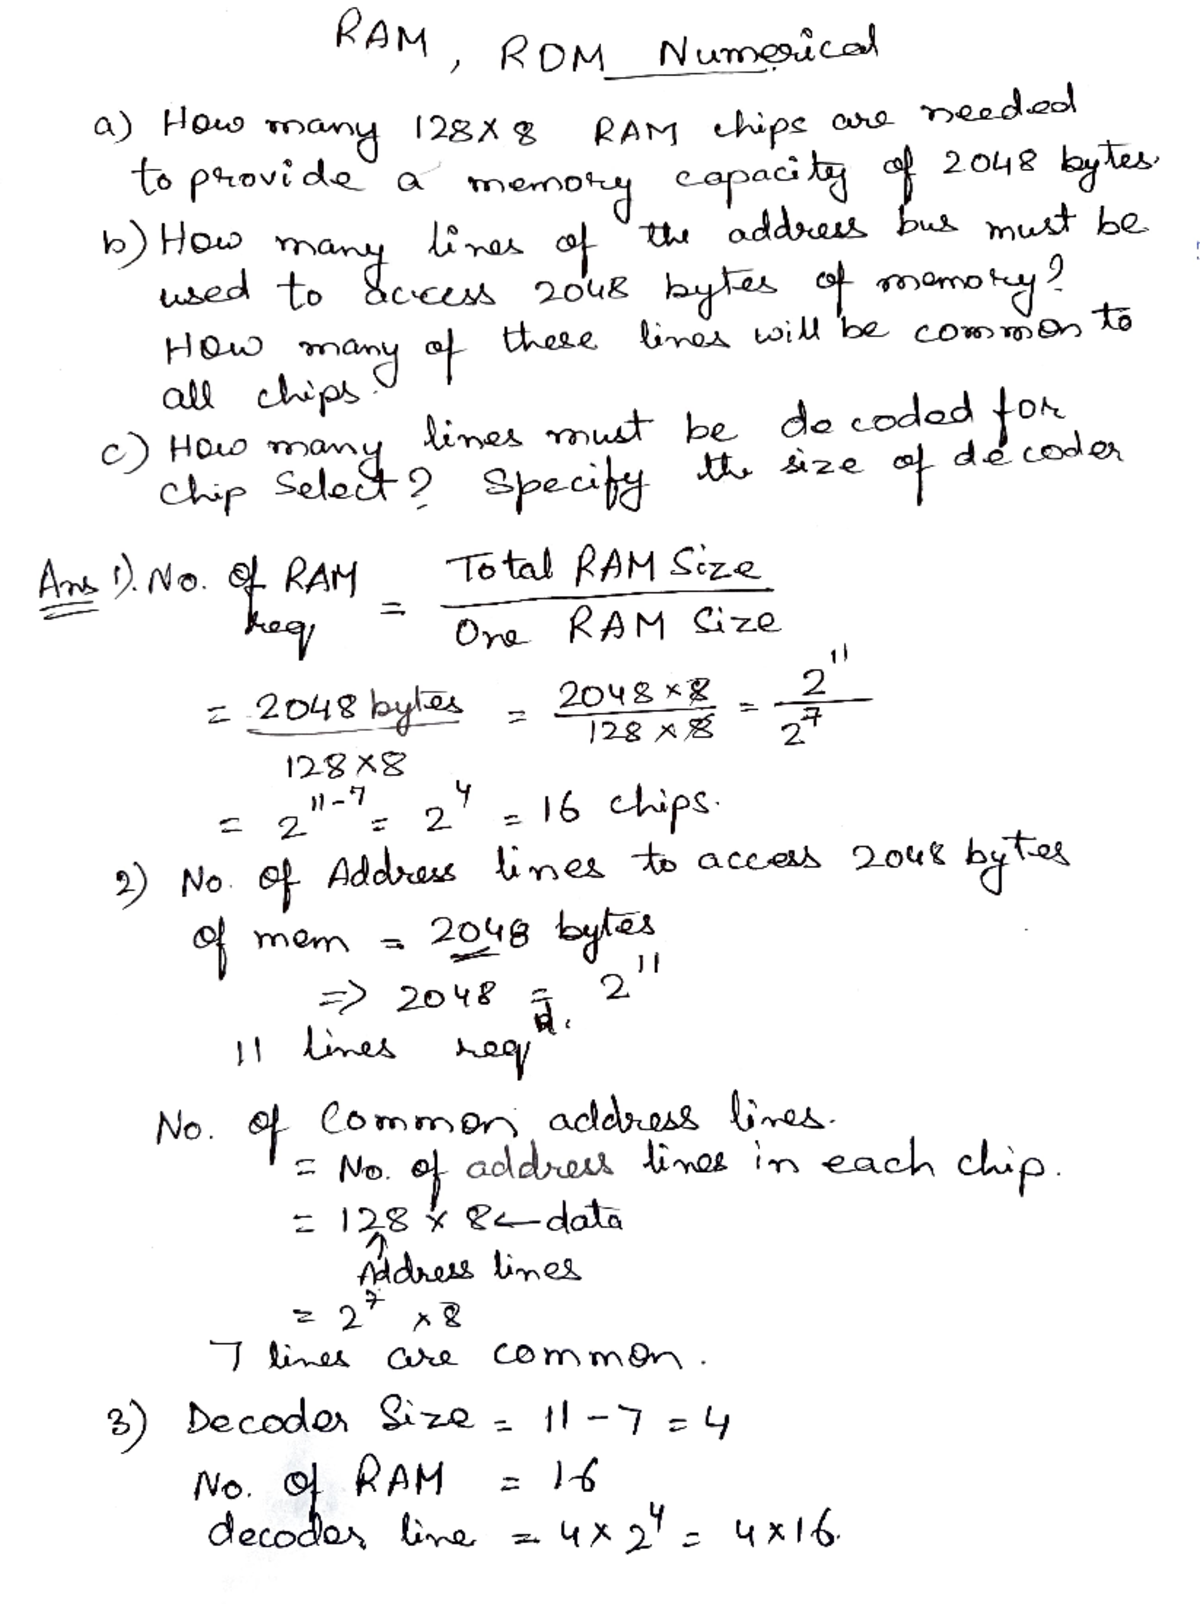 RAM, ROM Numerical
a) How many 128x8 RAM chips are needed
to provide a memory capacity of 2048 bytes.
b) How many lines of the address bus must be
used to access 2048 bytes of memory?
How many of these lines will be common to
all chips.
c) How many lines must be decoded for
chip select? Specify the size of decoder
Ans 1). No. of RAM req = Total RAM Size / One RAM Size
= 2048 bytes / 128x8 = 2048x8 / 128x8 = 2^11 / 2^7
= 2^11-7 = 2^4 = 16 chips.
2) No. of Address lines to access 2048 bytes
of mem = 2048 bytes
=> 2048 = 2^11
11 lines req d.
No. of Common address lines.
= No. of address lines in each chip.
= 128 x 8 ← data
↑
Address lines
= 2^7 x 8
7 lines are common.
3) Decoder Size = 11 - 7 = 4
No. of RAM = 16
decoder line = 4 x 2^4 = 4x16.